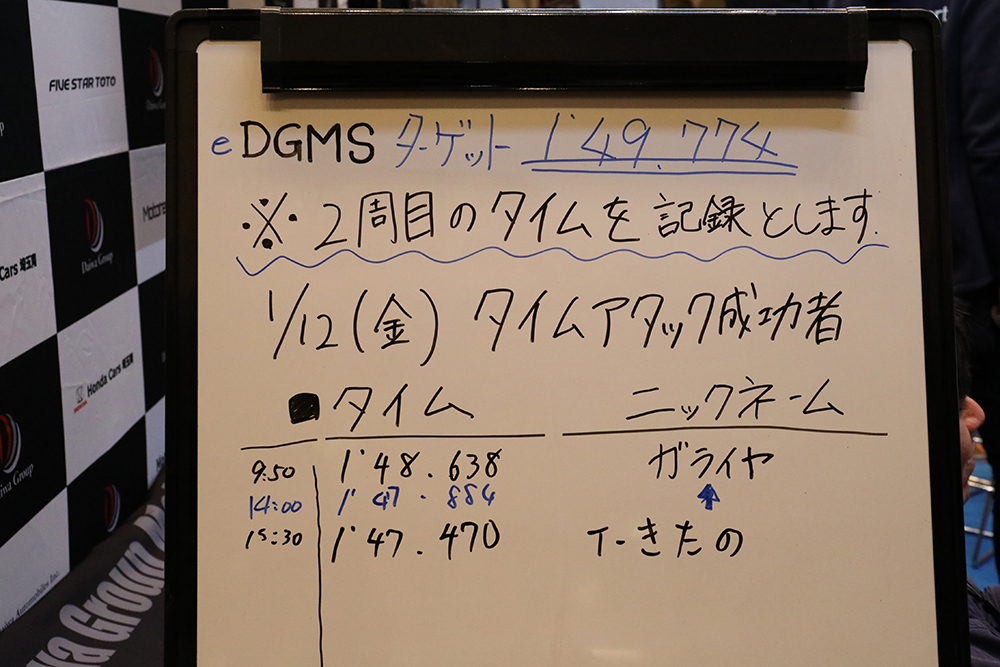 eDGMS ターゲット 1'49.774
※2周目のタイムを記録とします.
1/12(金) タイムアタック成功者
タイム ニックネーム
9:50 1'48.638 ガライヤ
14:00 1'47.884 ↑
15:30 1'47.470 T-きたの
FIVE STAR TOTO
Daiwa Group
Motora
Cars 埼玉南
Daiwa Group
Honda Cars 埼玉南
HONDA
iwa Group
Daiwa Automobiles Inc.
wa Group
rt